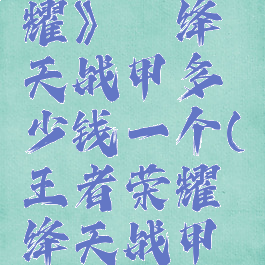 耀》 绛
天战甲多
少钱一个(
王者荣耀
绛天战甲